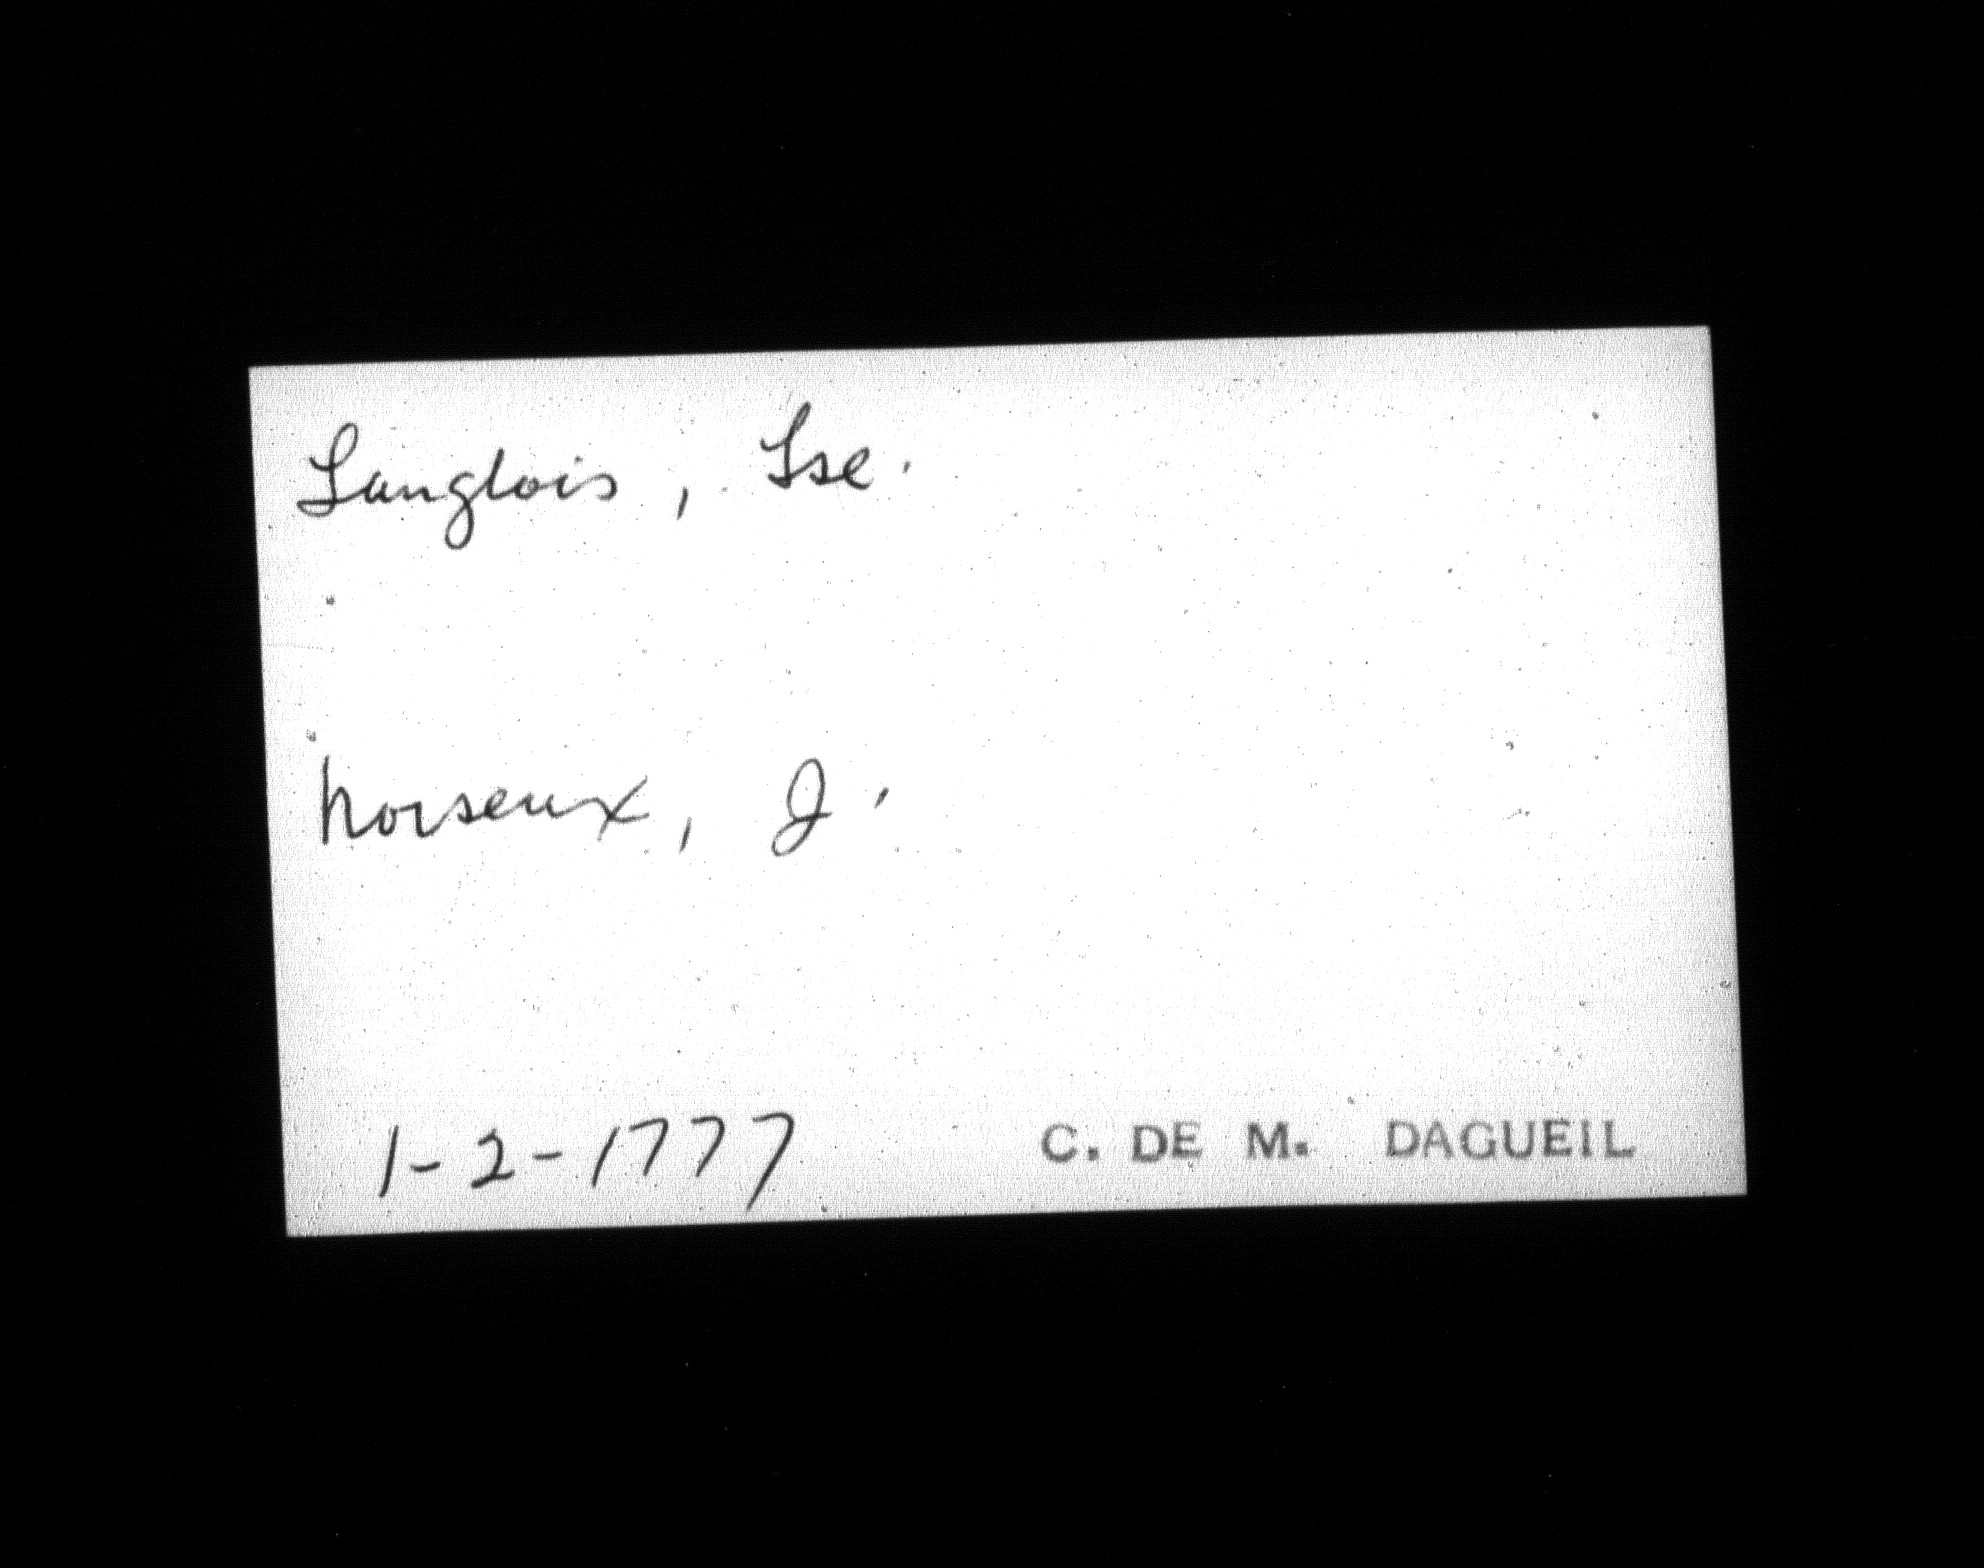 Langlois, Lse.
Noiseux, J.
1-2-1777 C. DE M. DAGUEIL